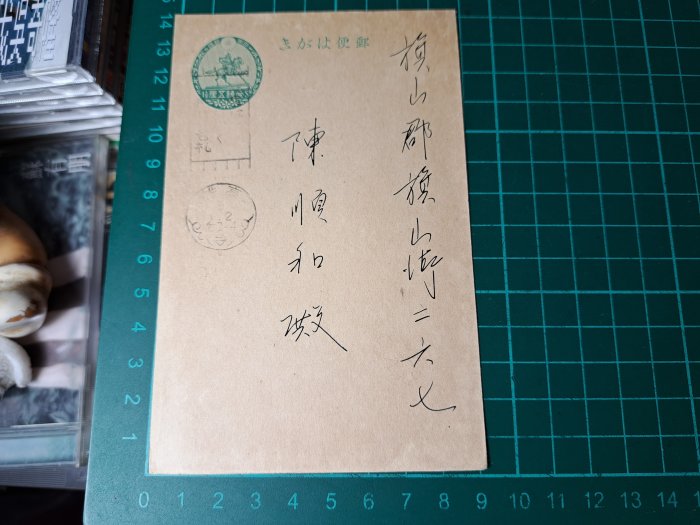 郵便はがき
旗山郡旗山街二六七
陳順和殿
15
14
13
12
11
10
9
8
7
6
5
4
3
2
1
0 1 2 3 4 5 6 7 8 9 10 11 12 13 14